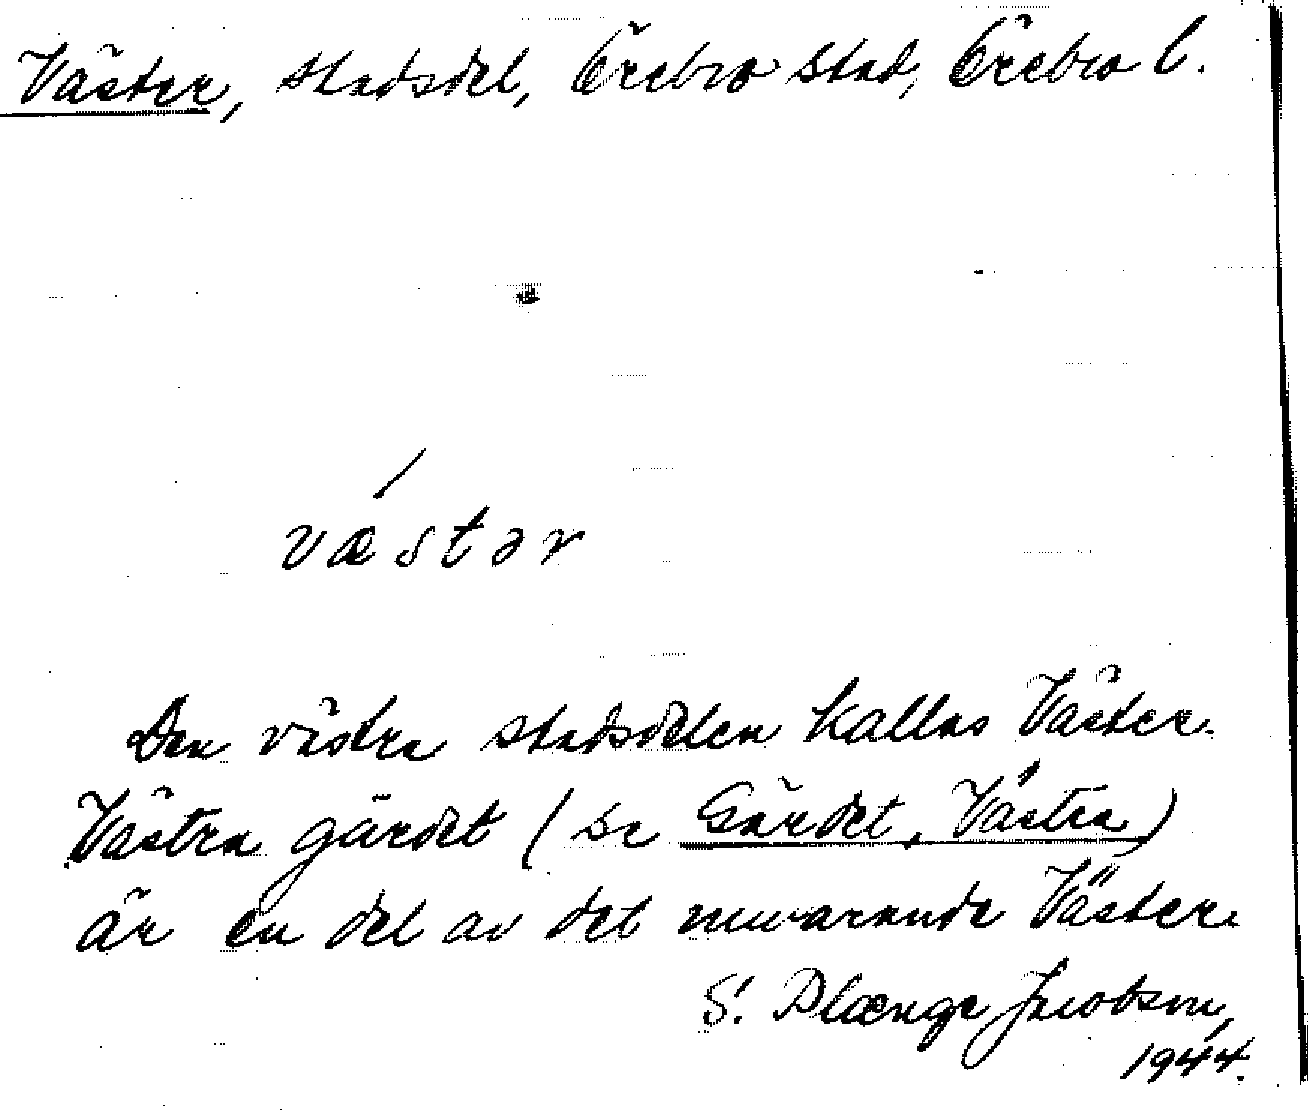 Väster, stadsdel, Örebro stad, Örebro l.
væstər
Den västra stadsdelen kallas Väster.
Västra gärdet (se Gärdet, Västra)
är en del av det nuvarande Väster.
S. Plænge Jacobson,
1944.